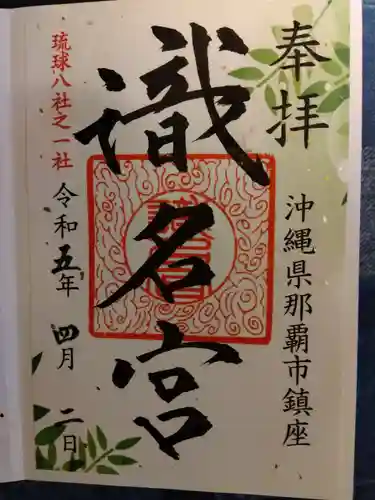 奉拝
沖縄県那覇市鎮座
識名宮
琉球八社之一社
令和五年 四月 二日